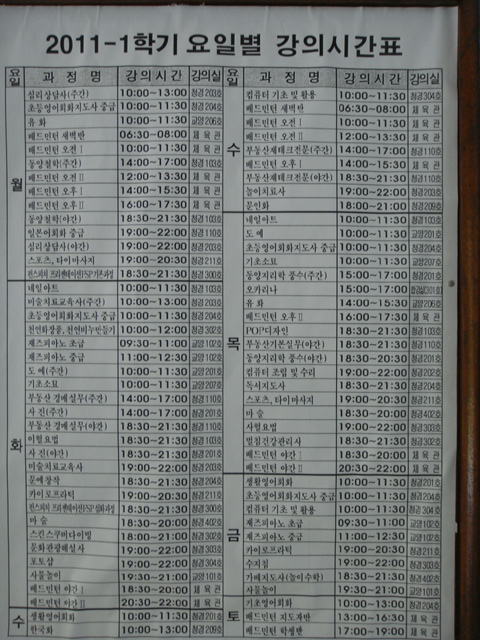 2011-1학기 요일별 강의시간표
요일 과 정 명 강의시간 강의실 요일 과 정 명 강의시간 강의실
월
심리상담사(주간) 10:00~13:00 청경203호
초등영어회화지도사 중급 10:00~11:30 청경204호
유 화 10:00~11:30 교양206호
배드민턴 새벽반 06:30~08:00 체 육 관
배드민턴 오전Ⅰ 10:00~11:30 체 육 관
동양철학(주간) 14:00~17:00 청경103호
배드민턴 오전Ⅱ 12:00~13:30 체 육 관
배드민턴 오후Ⅰ 14:00~15:30 체 육 관
배드민턴 오후Ⅱ 16:00~17:30 체 육 관
동양철학(야간) 18:30~21:30 청경103호
일본어회화 중급 19:00~22:00 청경110호
심리상담사(야간) 19:00~22:00 청경203호
스포츠, 타이마사지 19:00~20:30 청경211호
18:30~21:30 청경300호
화
네일아트 10:00~11:30 청경103호
미술치료교육사(주간) 10:00~13:00 청경203호
초등영어회화지도사 중급 10:00~11:30 청경204호
천연화장품, 천연비누만들기 10:00~12:00 청경302호
재즈피아노 초급 09:30~11:00 교양102호
재즈피아노 중급 11:00~12:30 교양102호
도 예(주간) 10:00~11:30 교양201호
기초소묘 10:00~11:30 교양207호
부동산 경매실무(주간) 14:00~17:00 청경110호
사 진(주간) 14:00~17:00 청경201호
부동산 경매실무(야간) 18:30~21:30 청경110호
이혈요법 18:30~21:30 청경103호
사 진(야간) 18:30~21:30 청경201호
미술치료교육사 19:00~22:00 청경203호
문예창작 18:30~21:30 청경204호
카이로프라틱 19:00~20:30 청경211호
18:30~21:30 청경300호
마 술 18:30~20:00 청경402호
스킨스쿠버다이빌 18:00~21:00 청경302호
문화관광해설사 19:00~22:00 청경303호
포토샵 19:00~22:00 청경304호
사물놀이 19:30~21:30 교양101호
배드민턴 야간Ⅰ 18:30~20:00 체 육 관
배드민턴 야간Ⅱ 20:30~22:00 체 육 관
수
생활영어회화 10:00~11:30 청경201호
한국화 10:00~13:00 청경209호
수
컴퓨터 기초 및 활용 10:00~11:30 청경304호
배드민턴 새벽반 06:30~08:00 체 육 관
배드민턴 오전Ⅰ 10:00~11:30 체 육 관
배드민턴 오전Ⅱ 12:00~13:30 체 육 관
부동산재테크전문(주간) 14:00~17:00 청경110호
배드민턴 오후Ⅰ 14:00~15:30 체 육 관
부동산재테크전문(야간) 18:30~21:30 청경110호
놀이치료사 19:00~22:00 청경203호
문인화 18:00~21:00 청경209호
목
네일아트 10:00~11:30 청경103호
도 예 10:00~11:30 교양201호
초등영어회화지도사 중급 10:00~11:30 청경204호
기초소묘 10:00~11:30 교양207호
동양지리학 풍수(주간) 15:00~17:00 청경201호
오카리나 15:00~17:00
유 화 14:00~15:30 교양206호
배드민턴 오후Ⅱ 16:00~17:30 체 육 관
POP디자인 18:30~21:30 청경103호
부동산기본실무(야간) 18:30~21:30 청경110호
동양지리학 풍수(야간) 18:30~20:30 청경201호
컴퓨터 조립 및 수리 19:00~22:00 청경202호
독서지도사 18:30~21:30 청경204호
스포츠, 타이마사지 19:00~20:30 청경211호
마 술 18:30~20:00 청경402호
사혈요법 19:00~22:00 청경303호
발침건강관리사 18:30~21:30 청경302호
배드민턴 야간Ⅰ 18:30~20:00 체 육 관
배드민턴 야간Ⅱ 20:30~22:00 체 육 관
금
생활영어회화 10:00~11:30 청경201호
초등영어회화지도사 중급 10:00~11:30 청경204호
컴퓨터 기초 및 활용 10:00~11:30 청경304호
재즈피아노 초급 09:30~11:00 교양102호
재즈피아노 중급 11:00~12:30 교양102호
카이로프라틱 19:00~20:30 청경211호
수지침 19:00~22:00 청경303호
가베지도사(놀이수학) 18:30~21:30 청경402호
사물놀이 19:30~21:30 교양101호
토
기초영어회화 10:00~13:00 청경204호
배드민턴 지도자반 13:00~16:00 체 육 관
배드민턴 학생반 17:00~19:00 체 육 관